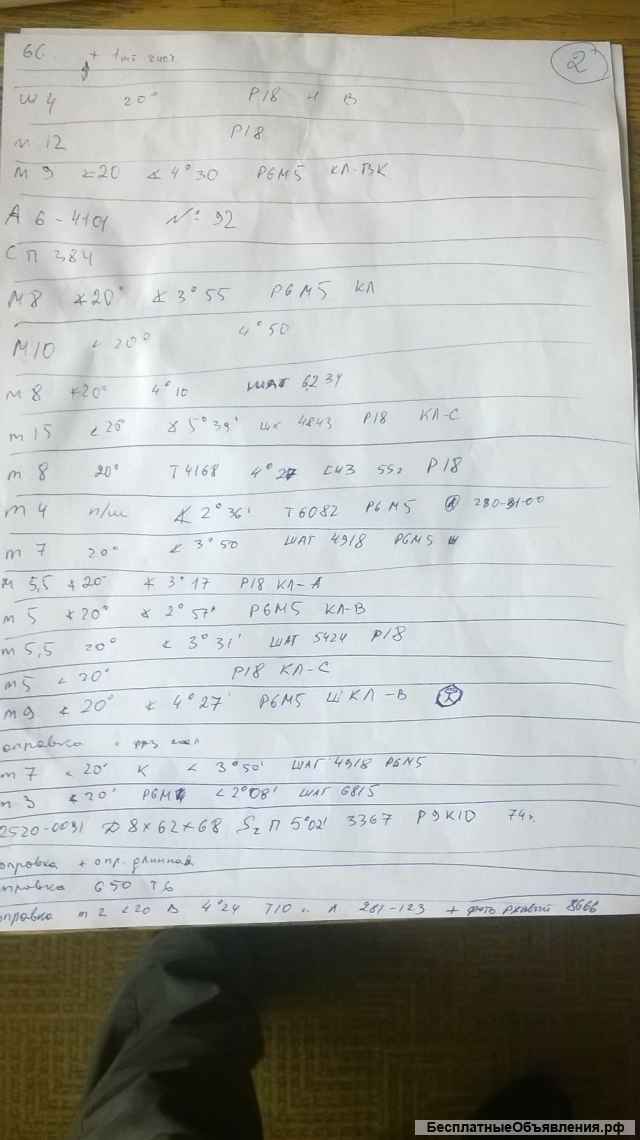 2
6С + 1
М 4 20° Р18 Н В
м 12 Р18
м 9 <20 < 4°30 Р6М5 КЛ-ВК
А 6-4101 № 92
СП 384
М8 <20° < 3°55 Р6М5 КЛ
М10 < 20° 4°50
м 8 <20° 4°10 ШАГ 6234
м 15 <20° < 5°39' 4843 Р18 КЛ-С
м 8 20° Т4168 4°27 55г Р18
м 4 п/ш < 2°36' Т6082 Р6М5
м 7 20° < 3°50 ШАГ 4918 Р6М5
м 5,5 <20° < 3°17 Р18 КЛ-А
м 5 <20° < 2°57' Р6М5 КЛ-В
м 5,5 20° < 3°31' ШАГ 5424 Р18
м5 < 20° Р18 КЛ-С
м9 < 20° < 4°27' Р6М5 КЛ-В
оправка
м 7 < 20' К < 3°50' ШАГ 4918 Р6М5
м 3 <20' < 2°08' ШАГ 6815
2520-0031 D 8×62×68 П 5°02' 3367 Р9К10 74г.
оправка + опр. длинная
оправка 650 Т6
оправка м 2 <20 В 4°24 Т10 А 281-123 + 8666
БесплатныеОбъявления.рф